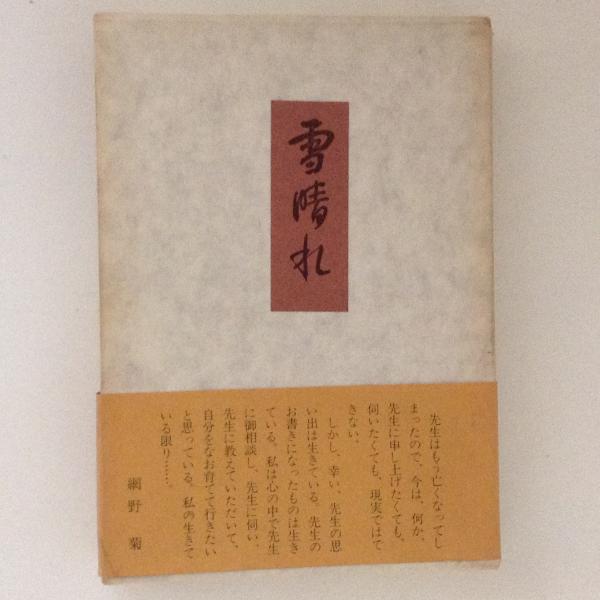 雪晴れ
先生はもう亡くなってし
まったので、今は、何か、
先生に申し上げたくても、
伺いたくても、現実ではで
きない。
しかし、幸い、先生の思
い出は生きている。先生の
お書きになったものは生き
ている。私は心の中で先生
に御相談し、先生に伺い、
先生に教えていただいて、
自分をなお育てて行きたい
と思っている。私の生きて
いる限り……。
網野 菊